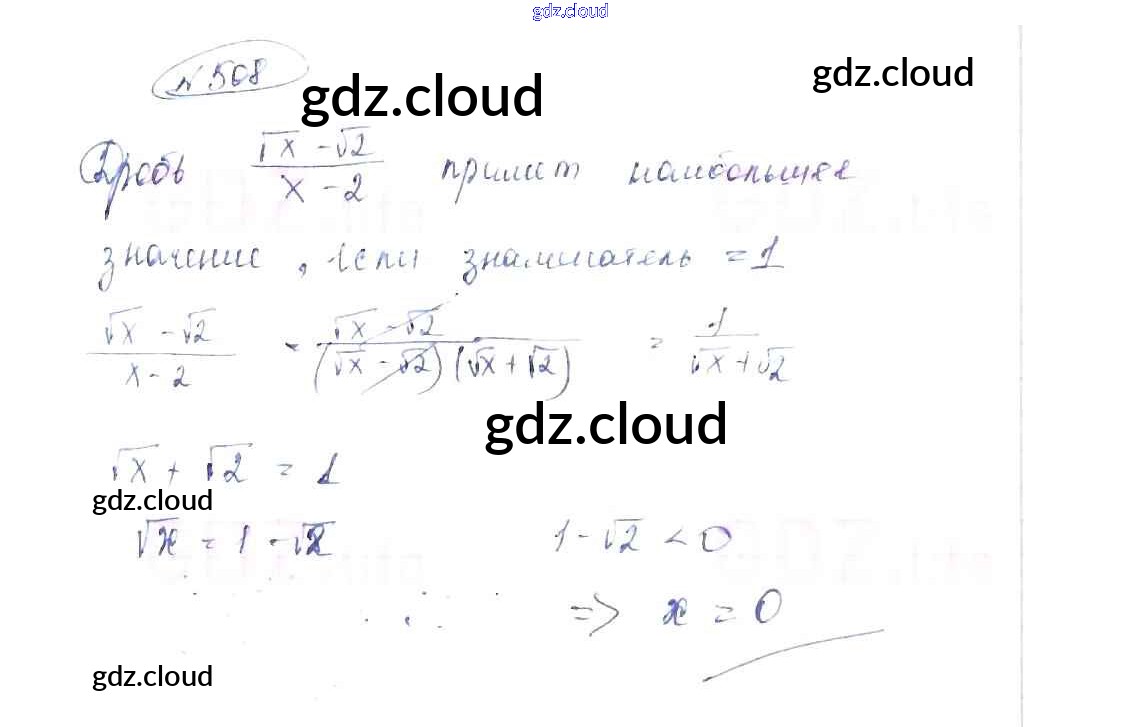 gdz.cloud
№ 508
gdz.cloud
gdz.cloud
Дробь (√x - √2)/(x - 2) примет наибольшее
значение, если знаменатель = 1
(√x - √2)/(x - 2) = (√x - √2)/((√x - √2)(√x + √2)) = 1/(√x + √2)
gdz.cloud
√x + √2 = 1
gdz.cloud
√x = 1 - √2 1 - √2 < 0
=> x = 0
gdz.cloud